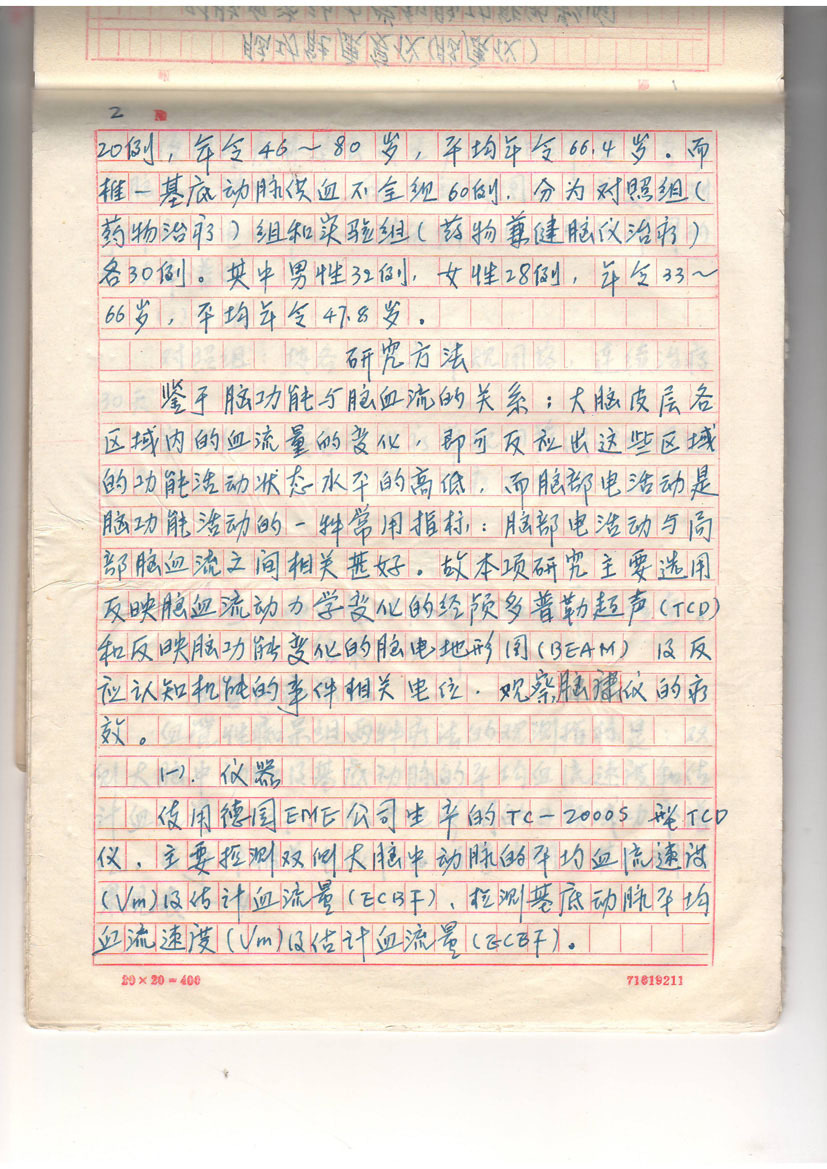 2
20例，年令46～80岁，平均年令66.4岁。而
椎－基底动脉供血不全组60例．分为对照组（
药物治疗）组和实验组（药物兼健脑仪治疗）
各30例。其中男性32例，女性28例，年令33～
66岁，平均年令47.8岁。
研究方法
鉴于脑功能与脑血流的关系；大脑皮层各
区域内的血流量的变化，即可反应出这些区域
的功能活动状态水平的高低，而脑部电活动是
脑功能活动的一种常用指标；脑部电活动与局
部脑血流之间相关甚好。故本项研究主要选用
反映脑血流动力学变化的经颅多普勒超声(TCD)
和反映脑功能变化的脑电地形图(BEAM) 及反
应认知机能的事件相关电位．观察脑康仪的疗
效。
(一)．仪器
使用德国EME公司生产的TC－2000S 型TCD
仪．主要检测双侧大脑中动脉的平均血流速度
(Vm)及估计血流量(ECBF)、检测基底动脉平均
血流速度(Vm)及估计血流量(ECBF)。
20×20＝400
71619211